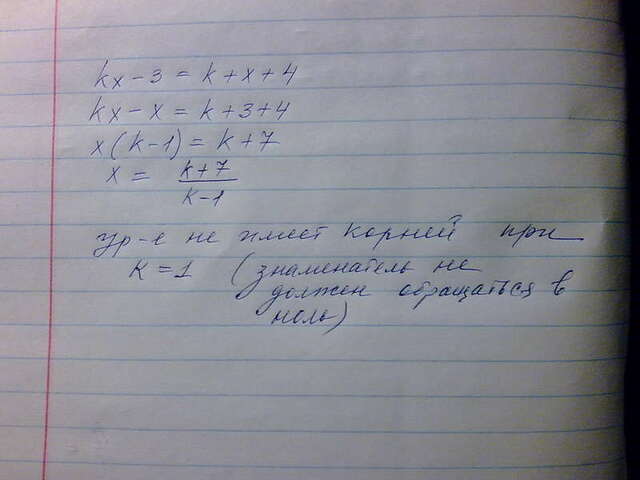 kx - 3 = k + x + 4
kx - x = k + 3 + 4
x(k - 1) = k + 7
x = (k+7)/(k-1)
ур-е не имеет корней при
k = 1 (знаменатель не
должен обращаться в
ноль)